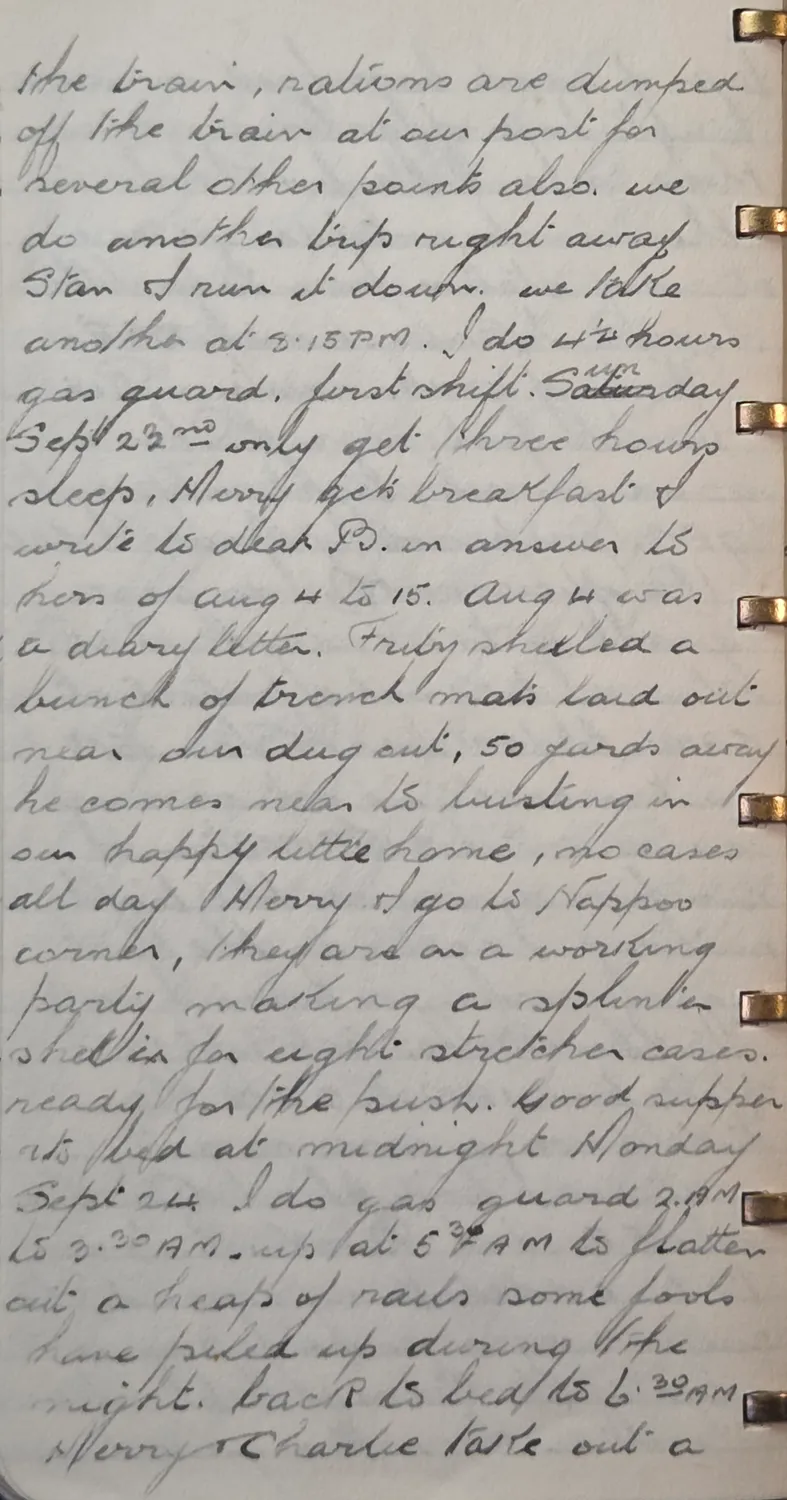 the train, rations are dumped
off the train at our post for
several other points also. we
do another trip right away
Stan & I run it down. we take
another at 8.15 PM. I do 4½ hours
gas guard. first shift. Saturday un
Sept 23 nd only get three hours
sleep, Merry gets breakfast I
write to dear B. in answer to
hers of Aug 4 to 15. Aug 4 was
a diary letter. Fritzy shelled a
bunch of trench mats laid out
near our dug out, 50 yards away
he comes near to busting in
our happy little home, no cases
all day Merry & I go to Nappoo
corner, they are on a working
party making a splinter
shelter for eight stretcher cases.
ready for the push. Good supper
& to bed at midnight Monday
Sept 24 I do gas guard 2. AM
to 3.30 AM. up at 5 30 AM to flatten
out a heap of rails some fools
have piled up during the
night. back to bed to 6.30 AM
Merry & Charlie take out a